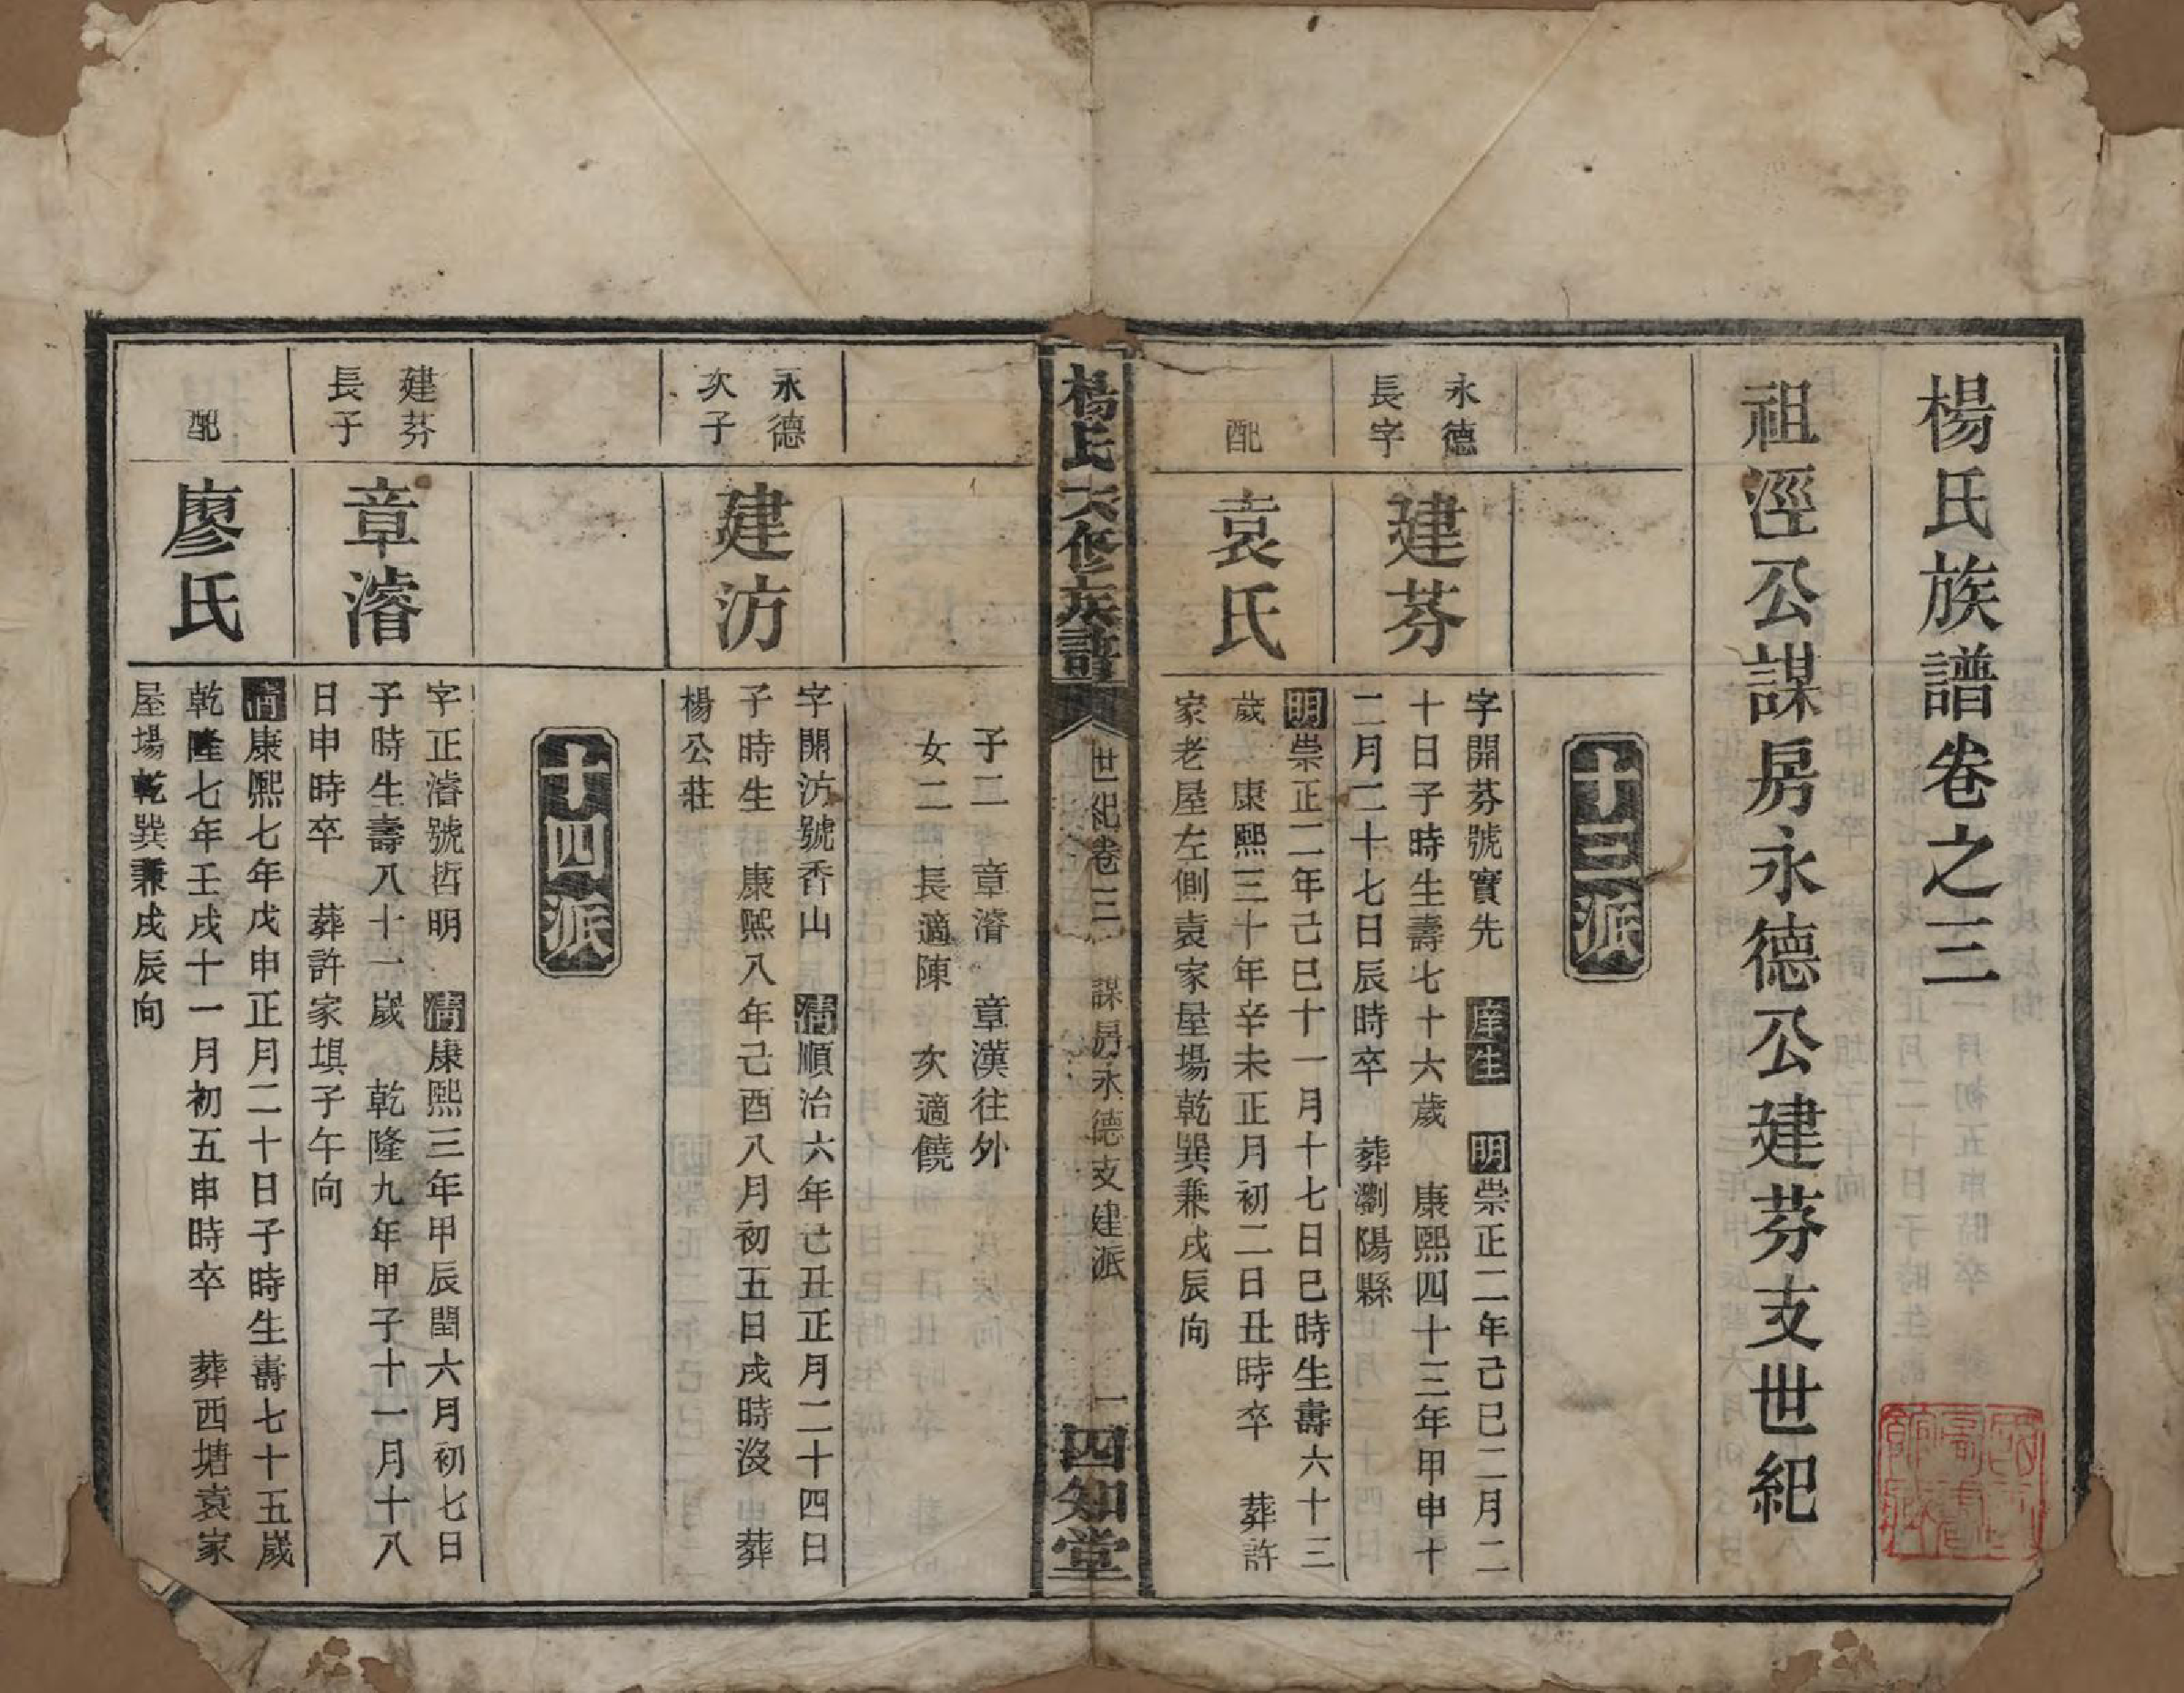 楊氏族譜卷之三
祖涇公謀房永德公建芬支世紀
十三派
永德
長字
建芬
字開芬號實先 庠生 明崇正二年己巳二月二
十日子時生壽七十六歲 康熙四十三年甲申十
二月二十七日辰時卒 葬瀏陽縣
配
袁氏
明崇正二年己巳十一月十七日巳時生壽六十三
歲 康熙三十年辛未正月初二日丑時卒 葬許
家老屋左側袁家屋場乾巽兼戌辰向
楊氏六修族譜
世紀卷三 謀房永德支建派 一
四知堂
子二 章濬 章漢往外
女二 長適陳 次適饒
永德
次子
建汸
字開汸號香山 清順治六年己丑正月二十四日
子時生 康熙八年己酉八月初五日戌時沒 葬
楊公莊
十四派
建芬
長子
章濬
字正濬號哲明 清康熙三年甲辰閏六月初七日
子時生壽八十一歲 乾隆九年甲子十一月十八
日申時卒 葬許家埧子午向
配
廖氏
清康熙七年戊申正月二十日子時生壽七十五歲
乾隆七年壬戌十一月初五申時卒 葬西塘袁家
屋場乾巽兼戌辰向